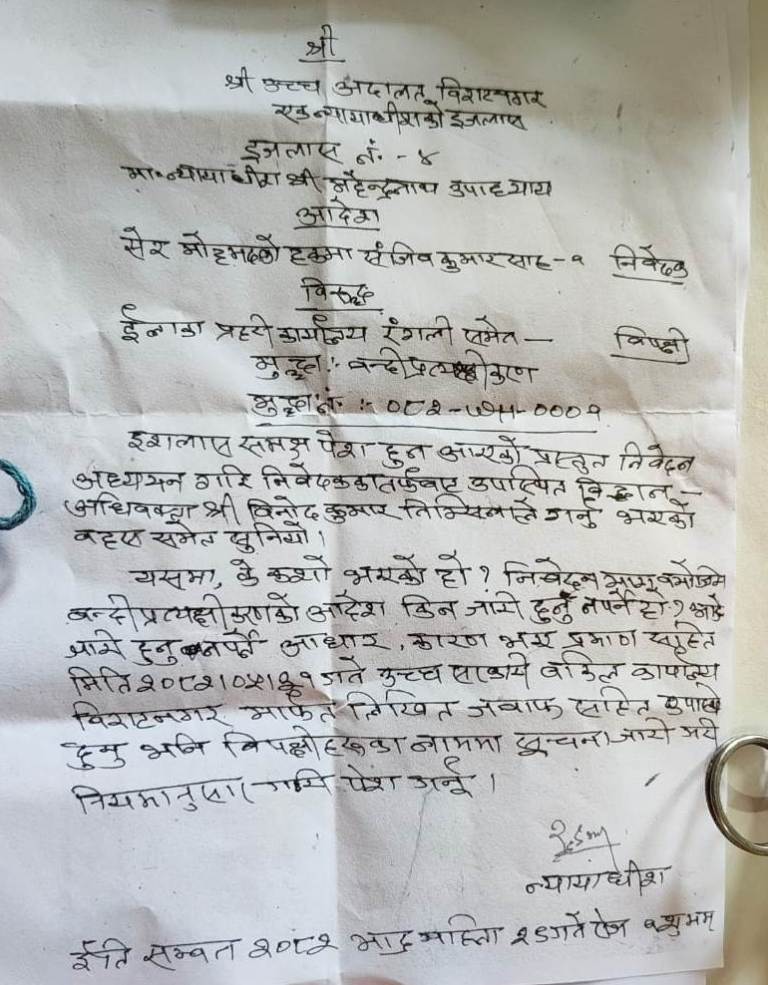 श्री
श्री उच्च अदालत, विराटनगर
एक न्यायाधीशको इजलास
इजलास नं. - ४
मा. न्यायाधीश श्री महेन्द्रनाथ उपाध्याय
आदेश
सेर मोहमदको हकमा संजिव कुमार साह - १ निवेदक
विरूद्ध
ईलाका प्रहरी कार्यालय रंगेली समेत — विपक्षी
मुद्दा :- बन्दीप्रत्यक्षीकरण
मुद्दा नं. :- ०८२-WH-०००१
इजलास समक्ष पेश हुन आएको प्रस्तुत निवेदन
अध्ययन गरि निवेदकका तर्फबाट उपस्थित विद्वान -
अधिवक्ता श्री विनोद कुमार तिम्सिनाले गर्नु भएको
वहस समेत सुनियो।
यसमा, के कसो भएको हो? निवेदन माग बमोजिम
बन्दीप्रत्यक्षीकरणको आदेश किन जारी हुनु नपर्ने हो? आदेश
जारी हुनु नपर्ने आधार, कारण भए प्रमाण सहित
मिति २०८२।०५। गते उच्च सरकारी वकिल कार्यालय
विराटनगर मार्फत लिखित जवाफ सहित उपस्थित
हुनु भनि विपक्षीहरूका नाममा सूचना जारी गरी
नियमानुसार गरि पेश गर्नू।
न्यायाधीश
ईति सम्वत २०८२ भाद्र महिना गते रोज १ शुभम्